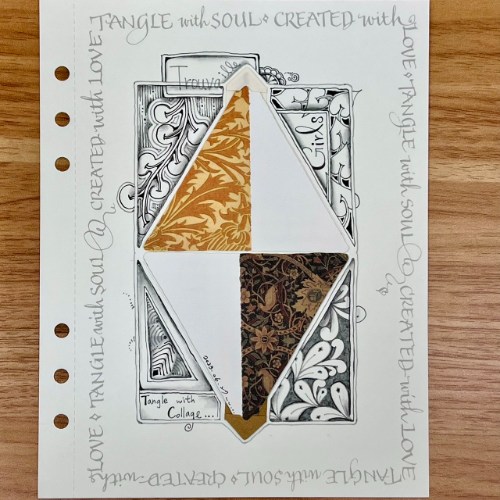 TANGLE with SOUL CREATED with
LOVE TANGLE with SOUL @ CREATED with LOVE
TANGLE with SOUL CREATED with
LOVE TANGLE with SOUL @ CREATED with LOVE
Trouvaille
Girls
Tangle with
Collage...